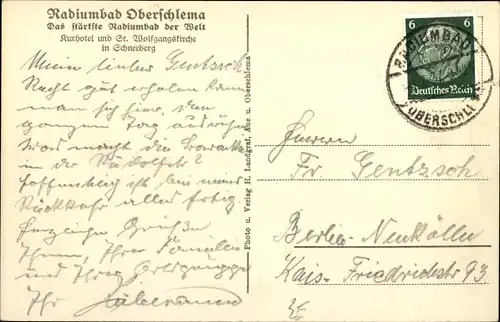 Radiumbad Oberschlema
Das stärkste Radiumbad der Welt
Kurhotel und St. Wolfgangskirche
in Schneeberg
Mein lieber Gentzsch
Recht gut erholen kann
man sich hier, den
ganzen Tag ausruhn
Was macht die Baracke
in der Rudolfstr?
Hoffentlich ist bei meiner
Rückkehr alles fertig.
Herzliche Grüße
Ihnen, Ihrer Familie
und Ihrer
Ihr
Photo u. Verlag H. Landgraf, Aue u. Oberschlema
6 6
Deutsches Reich
RADIUMBAD
OBERSCHLEMA
Herrn
Fr. Gentzsch
Berlin-Neukölln
Kais-Friedrichstr 93.